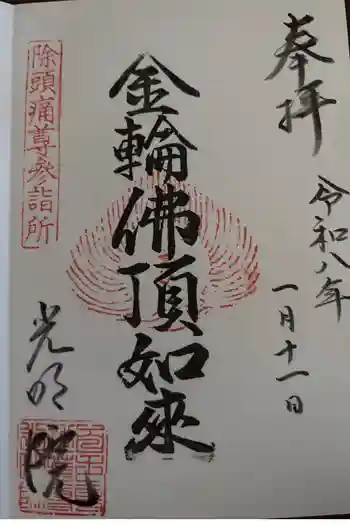 奉拝
令和八年
一月十一日
金輪佛頂如來
除頭痛尊參詣所
光明院